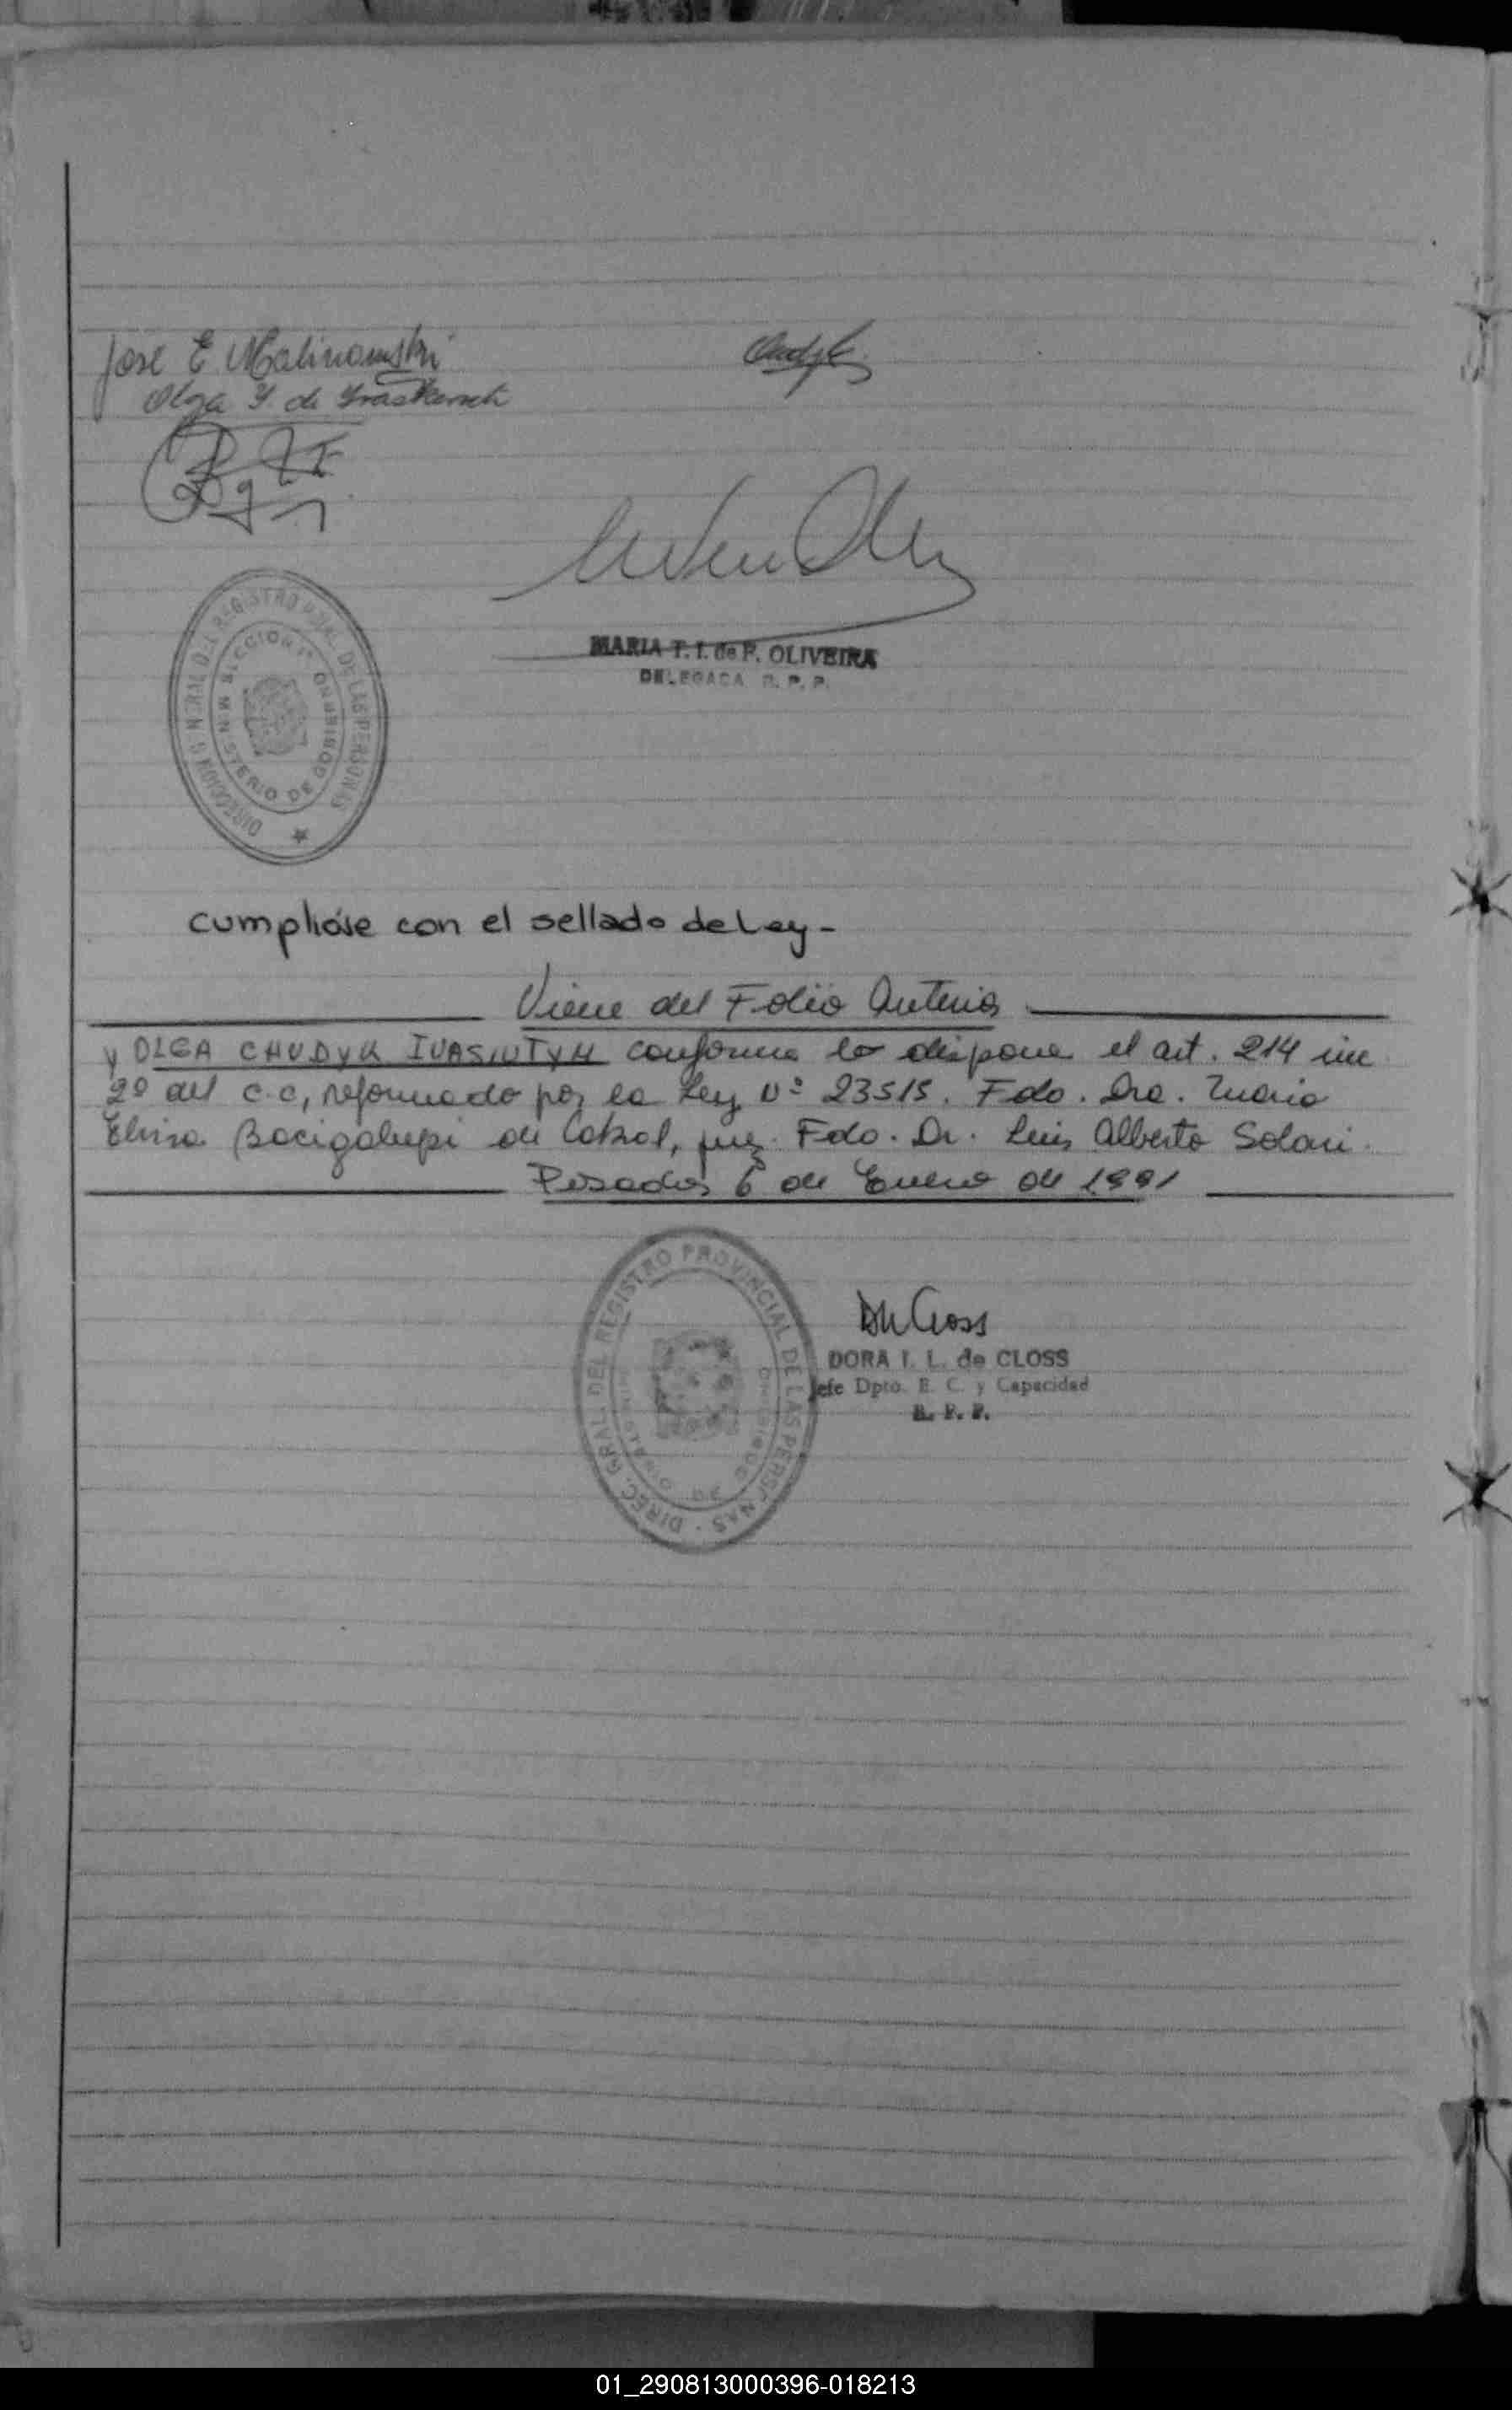 Jose E Malinowski
Olga Y. de
MARIA T. I. de F. OLIVEIRA
DELEGADA R. P. P.
DIRECCION GENERAL DEL REGISTRO PCIAL. DE LAS PERSONAS
MINISTERIO DE GOBIERNO SECCION
cumplióse con el sellado de Ley-
Viene del Folio Anterior
y OLGA CHUDYK IVASIUTYH conforme lo dispone el art. 214 inc
2º del c.c, reformado por la Ley Nº 23515. Fdo. Dra. Maria
Elvira Bacigalupi de Cabral, juez. Fdo. Dr. Luis Alberto Solari.
Posadas 6 de Enero de 1991
DIREC. GRAL. DEL REGISTRO PROVINCIAL DE LAS PERSONAS
MINISTERIO DE GOBIERNO
DORA I. L. de CLOSS
Jefe Dpto. E. C. y Capacidad
R. P. P.
01_290813000396-018213